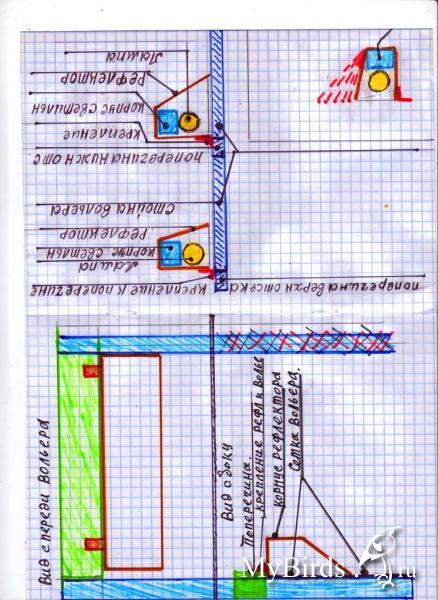 Лампа
Рефлектор
корпус светильн
крепление
поперечина нижн отс
Стойка вольера
Рефлектор
корпус светильн
Лампа
крепление к поперечине
поперечина верхн отсека
Вид с переди вольера
Вид с боку
Поперечина.
крепление рефл и вольє
корпус рефлектора
Сетка вольера.
MyBirds.ru